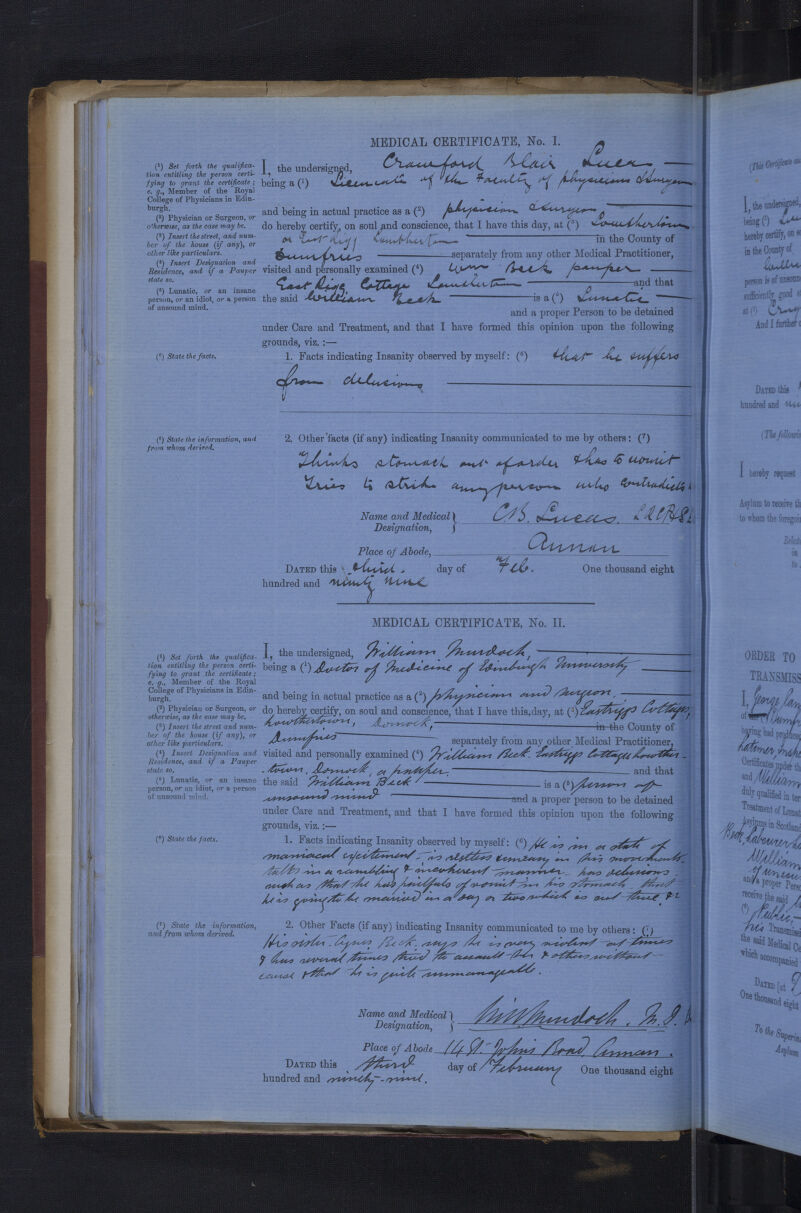 MEDICAL CERTIFICATE, No. I.
(¹) Set forth the qualifica-
tion entitling the person certi-
fying to grant the certificate;
e. g., Member of the Royal
College of Physicians in Edin-
burgh.
(²) Physician or Surgeon, or
otherwise, as the case may be.
(³) Insert the street, and num-
ber of the house (if any), or
other like particulars.
(⁴) Insert Designation and
Residence, and if a Pauper
state so.
(⁵) Lunatic, or an insane
person, or an idiot, or a person
of unsound mind.
I, the undersigned, Crawford Blair Lucas
being a (¹) Licentiate of the Faculty of Physicians & Surgeons
and being in actual practice as a (²) physician & surgeon
do hereby certify, on soul and conscience, that I have this day, at (³) Lowthertown
in the County of
Dumfries separately from any other Medical Practitioner,
visited and personally examined (⁴) Wm Beck pauper
East Rigg Cottage Lowthertown and that
the said William Beck is a (⁵) Lunatic
and a proper Person to be detained
under Care and Treatment, and that I have formed this opinion upon the following
grounds, viz. :—
(⁶) State the facts.
1. Facts indicating Insanity observed by myself: (⁶) that he suffers
from delusions
(⁷) State the information, and
from whom derived.
2. Other facts (if any) indicating Insanity communicated to me by others: (⁷)
Thinks stomach out of order & has to vomit
Tries to strike any person who contradicts
Name and Medical Designation, C.B. Lucas.
Place of Abode, Annan
DATED this third day of Feb. One thousand eight
hundred and ninety nine
MEDICAL CERTIFICATE, No. II.
(¹) Set forth the qualifica-
tion entitling the person certi-
fying to grant the certificate;
e. g., Member of the Royal
College of Physicians in Edin-
burgh.
(²) Physician or Surgeon, or
otherwise, as the case may be.
(³) Insert the street and num-
ber of the house (if any), or
other like particulars.
(⁴) Insert Designation and
Residence, and if a Pauper
state so.
(⁵) Lunatic, or an insane
person, or an idiot, or a person
of unsound mind.
I, the undersigned, William Murdoch,
being a (¹) Doctor of Medicine of Edinburgh University
and being in actual practice as a (²) physician and surgeon.
do hereby certify, on soul and conscience, that I have this day, at (³) Eastriggs Cottage,
Lowthertown, Dornock, in the County of
Dumfries separately from any other Medical Practitioner,
visited and personally examined (⁴) William Beck. Eastriggs Cottages Lowther-
town, Dornock, a pauper. and that
the said William Beck is a (⁵) person of
unsound mind and a proper person to be detained
under Care and Treatment, and that I have formed this opinion upon the following
grounds, viz. :—
(⁶) State the facts.
1. Facts indicating Insanity observed by myself: (⁶) He is in a state of
maniacal excitement - is restless & uneasy in his movements
talks in a rambling & incoherent manner, has delusions
such as that he has pailfuls of vomit in his stomach, that
he is going to be married in a day or two which is not true, &c
(⁷) State the information,
and from whom derived.
2. Other Facts (if any) indicating Insanity communicated to me by others: (⁷)
His sister Agnes Beck, says he is very violent at times
& has several times tried to assault her & others without
cause & that he is quite unmanageable.
Name and Medical Designation, Wm Murdoch. M.D.
Place of Abode 14 St. Johns Road Annan.
DATED this third day of February One thousand eight
hundred and ninety-nine.
I, the undersigned,
being (¹)
hereby certify, on
in the County of
person is of unsound
sufficiently good
at (³)
And I further
DATED this
hundred and
I hereby request
Asylum to receive
to whom the foregoing
ORDER TO
TRANSMISS
I, George
Certificates
and William
duly qualified in
Treatment of
Asylums in Scotland
William
and a proper
receive the said
the said Medical
which accompanied
DATED [at
One thousand eight
To the
Asylum